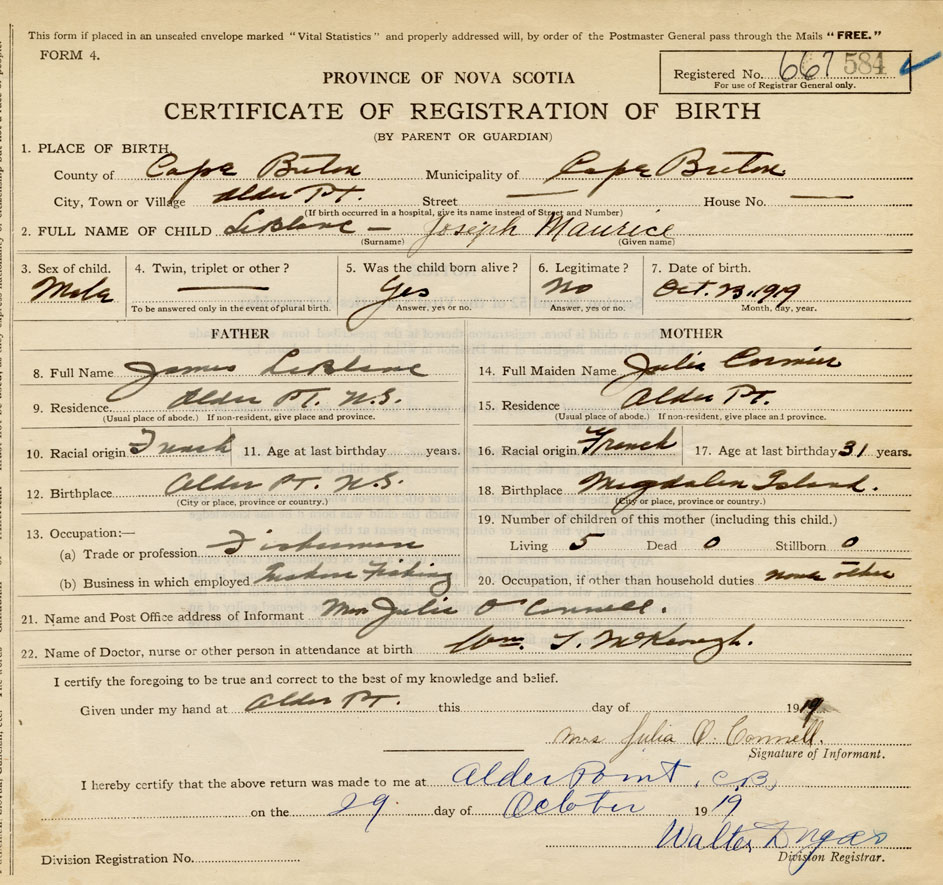 This form if placed in an unsealed envelope marked "Vital Statistics" and properly addressed will, by order of the Postmaster General pass through the Mails "FREE."
FORM 4.
Registered No. 667 584
For use of Registrar General only.
PROVINCE OF NOVA SCOTIA
CERTIFICATE OF REGISTRATION OF BIRTH
(BY PARENT OR GUARDIAN)
1. PLACE OF BIRTH,
County of Cape Breton Municipality of Cape Breton
City, Town or Village Alder Pt. Street — House No. —
(If birth occurred in a hospital, give its name instead of Street and Number)
2. FULL NAME OF CHILD LeBlanc — Joseph Maurice
(Surname) (Given name)
3. Sex of child. 4. Twin, triplet or other? 5. Was the child born alive? 6. Legitimate? 7. Date of birth.
Male — Yes No Oct. 23, 1919
To be answered only in the event of plural birth. Answer, yes or no. Answer, yes or no. Month, day, year.
FATHER MOTHER
8. Full Name James LeBlanc 14. Full Maiden Name Julia Cormier
9. Residence Alder Pt. N.S. 15. Residence Alder Pt.
(Usual place of abode.) If non-resident, give place and province. (Usual place of abode.) If non-resident, give place and province.
10. Racial origin French 11. Age at last birthday years. 16. Racial origin French 17. Age at last birthday 31 years.
12. Birthplace Alder Pt. N.S. 18. Birthplace Magdalen Island.
(City or place, province or country.) (City or place, province or country.)
13. Occupation:— 19. Number of children of this mother (including this child.)
(a) Trade or profession Fisherman Living 5 Dead 0 Stillborn 0
(b) Business in which employed Inshore Fishing 20. Occupation, if other than household duties none other
21. Name and Post Office address of Informant Mrs Julia O'Connell.
22. Name of Doctor, nurse or other person in attendance at birth Wm. T. McKeough.
I certify the foregoing to be true and correct to the best of my knowledge and belief.
Given under my hand at Alder Pt. this day of 1919
Mrs Julia O. Connell.
Signature of Informant.
I hereby certify that the above return was made to me at Alder Point, C.B.,
on the 29. day of October 1919
Walter Dugas
Division Registrar.
Division Registration No.